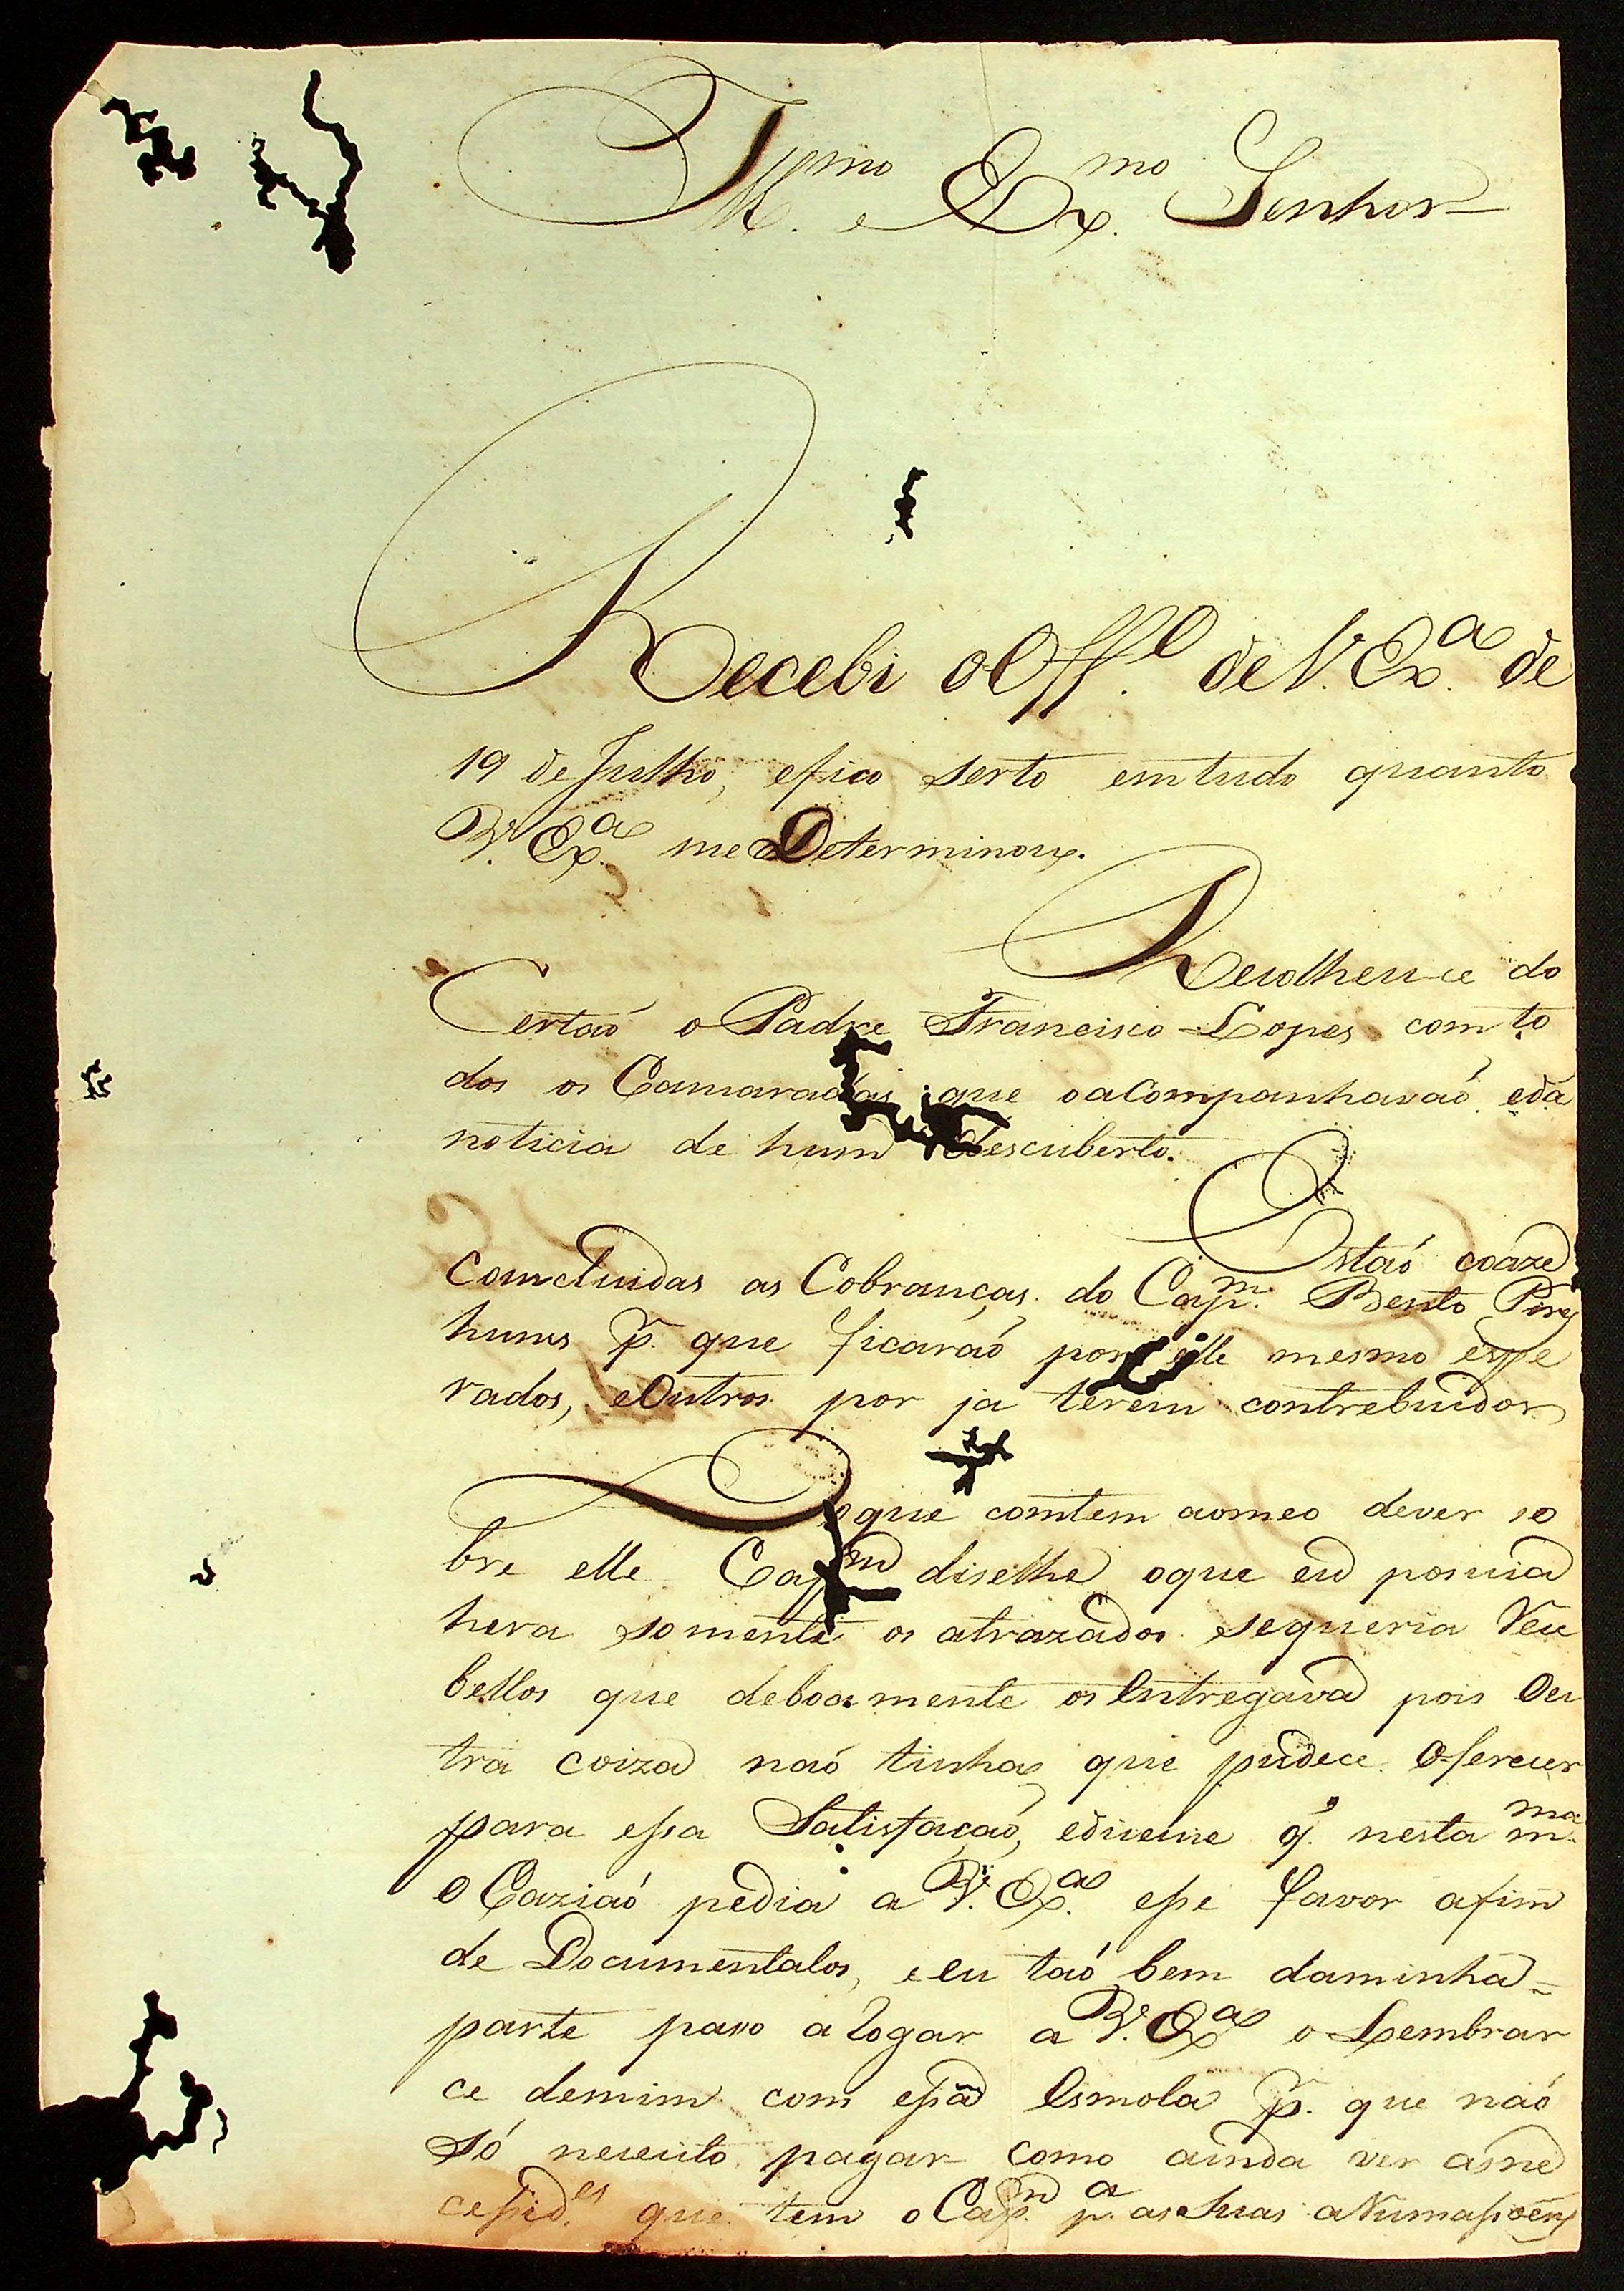 Illmo. e Exmo. Senhor
Recebi o Offo. de V. Exa. de
19 de Julho, efico serto emtudo quanto
V. Exa. me Determinou.
Recolheu-ce do
Certaó o Padre Francisco Lopes com to
dos os Camaradas que oaCompanhavaó edá
noticia de hum descuberto.
Estaó coaze
Comcluidas as Cobranças do Capm. Bento Pires
huns p. que ficaraó por elle mesmo espe
rados, eOutros por ja terem contrebuidos
Oque comtem aomeo dever so
bre elle Capm diselhe oque eu posuia
hera somente os atrazados sequeria Rece
bellos que deboamente os Entregava pois Ou
tra coiza naó tinha que pudece Oferecer
para essa Satisfaçaó, ediceme q. nesta mma.
OCaziaó pedia a V. Exa. esse favor afim
de Documentalos, e eu taó bem daminha
parte paso aRogar a V. Exa o Lembrar
ce demim com essa Esmola p. que naó
só necesito pagar como ainda ver asne
cessides. que tem o Capm pa. as suas aRumassoens